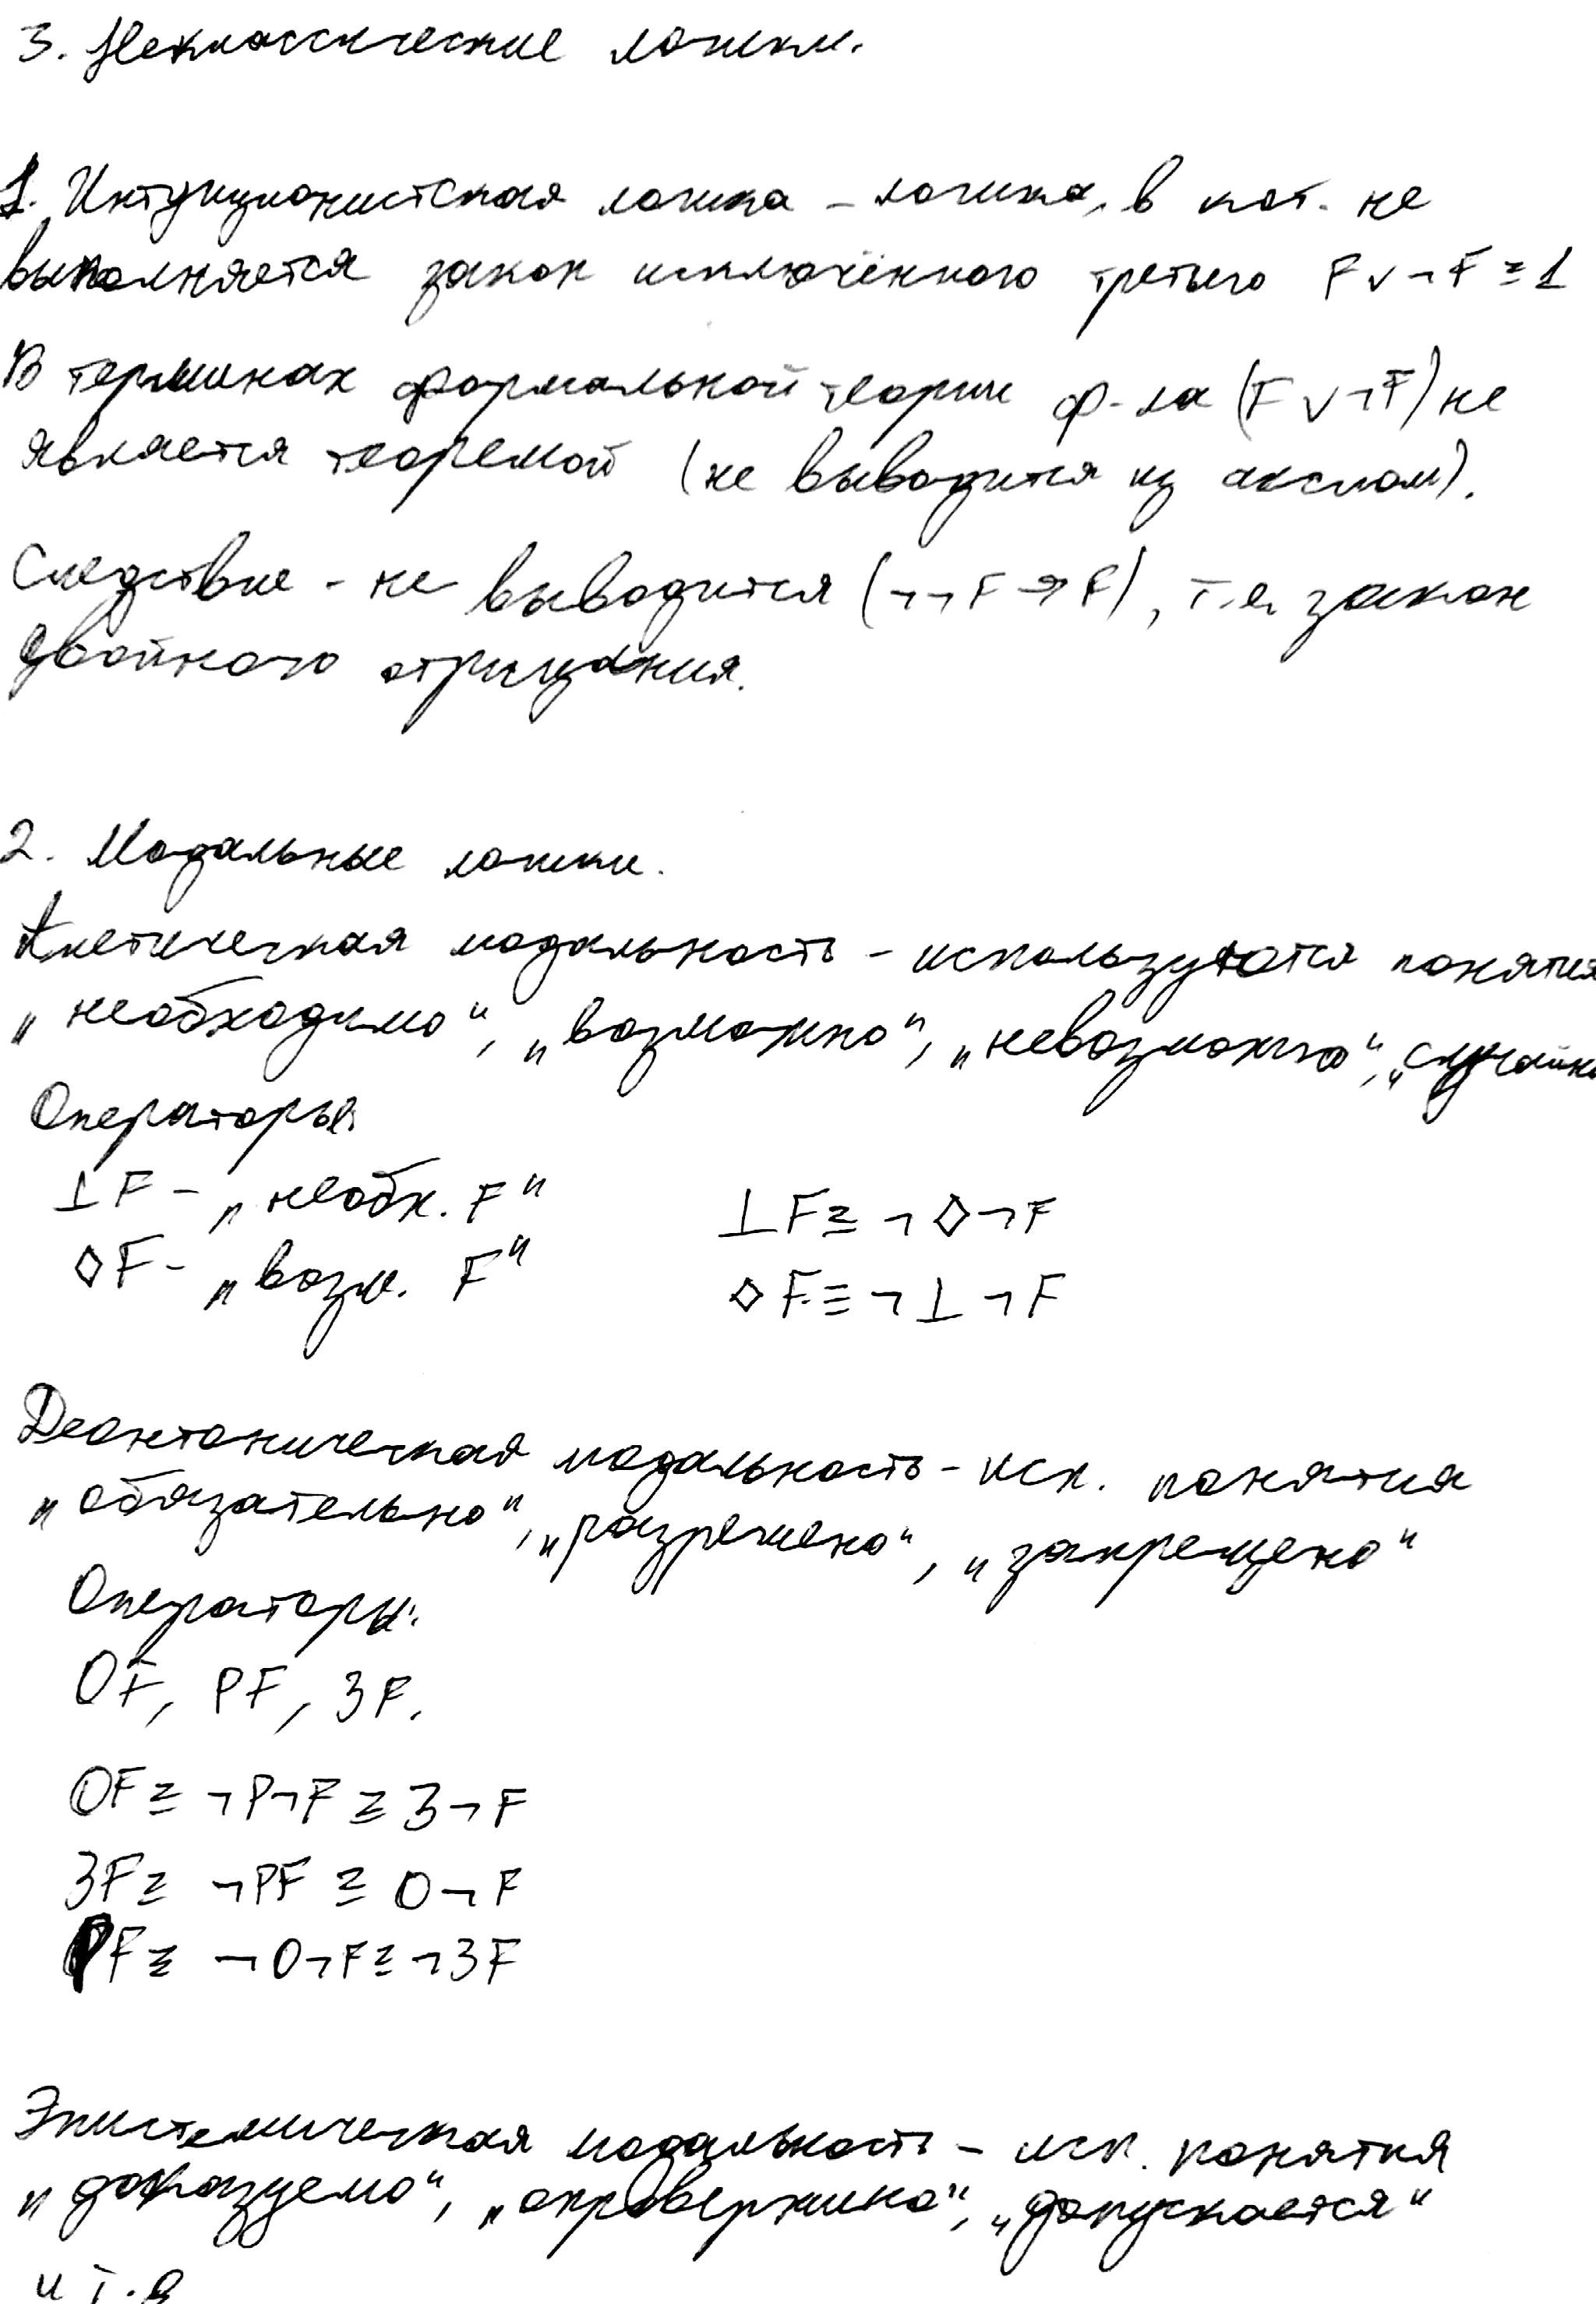 3. Неклассические логики.
1. Интуиционистская логика – логика, в кот. не
выполняется закон исключённого третьего F ∨ ¬F ≅ 1
В терминах формальной теории ф-ла (F ∨ ¬F) не
является теоремой (не выводится из аксиом).
Следствие - не выводится (¬¬F → F), т.е. закон
двойного отрицания.
2. Модальные логики.
Алетическая модальность – используются понятия
„необходимо“, „возможно“, „невозможно“, „случайно
Операторы:
⊥F – „необх. F“ ⊥F ≅ ¬◇¬F
◇F – „возм. F“ ◇F ≡ ¬⊥¬F
Деонтоническая модальность – исп. понятия
„обязательно“, „разрешено“, „запрещено“
Операторы:
OF, PF, ЗF.
OF ≅ ¬P¬F ≅ З¬F
ЗF ≅ ¬PF ≅ O¬F
PF ≅ ¬O¬F ≅ ¬ЗF
Эпистемическая модальность – исп. понятия
„доказуемо“, „опровержимо“, „допускается“
и т.д